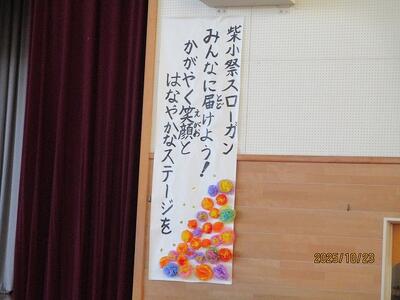 柴小祭スローガン
みんなに届けよう！
とど
かがやく笑顔と
えがお
はなやかなステージを
2025/10/23